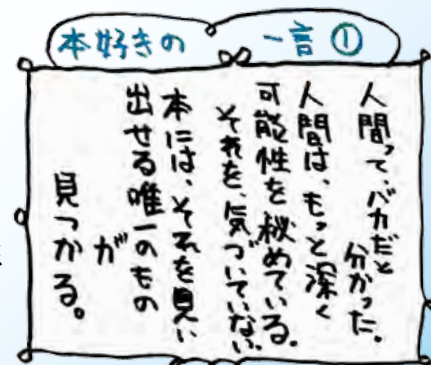 本好きの 一言①
人間って、バカだと
分かった。
人間は、もっと深く
可能性を秘めている。
それを、気づいていない。
本には、それを見い
出せる唯一のもの
が
見つかる。